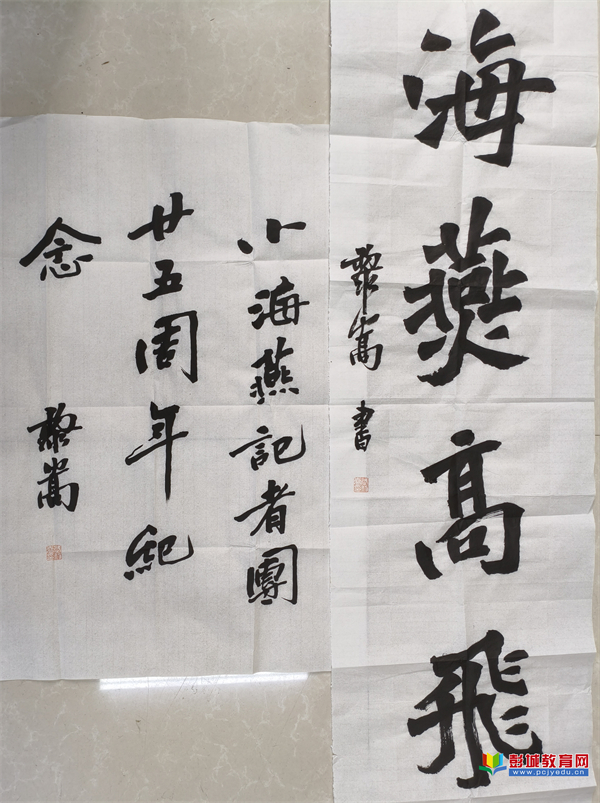 海燕高飛
嵩 書
小海燕記者團
廿五周年紀
念
嵩
彭城教育网
www.pcjyedu.cn